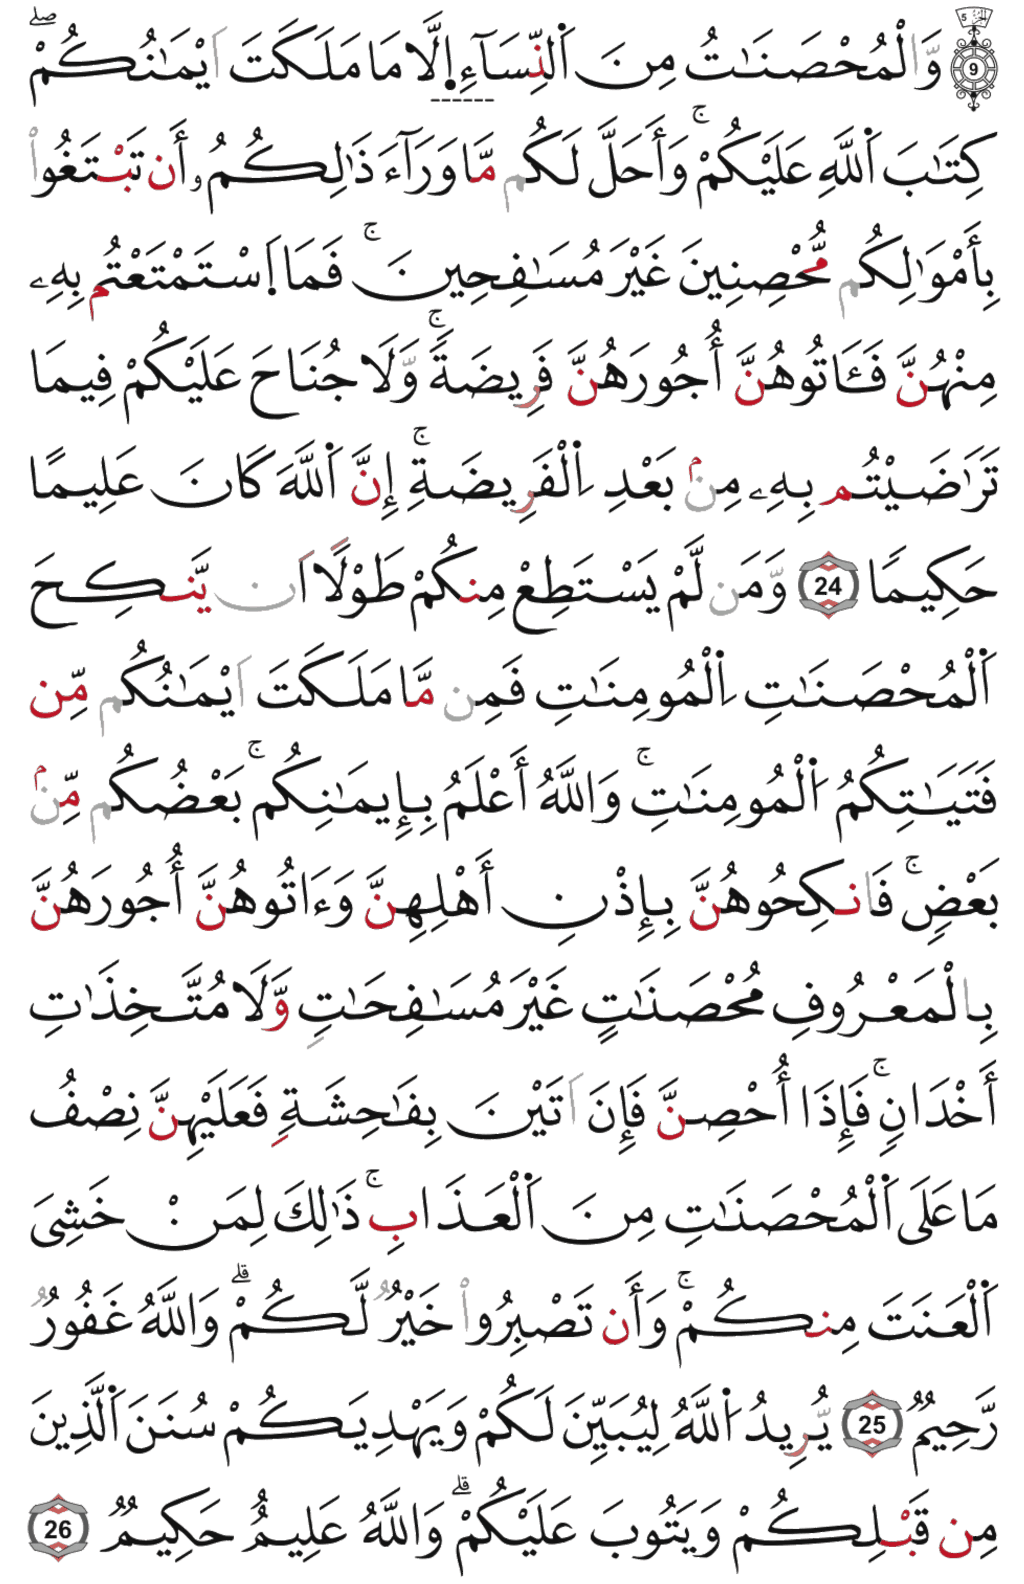 وَّالْمُحْصَنَٰتُ مِنَ اَ۬لنِّسَآءِ اِ۪لَّا مَا مَلَكَتَ اَيْمَٰنُكُمْۖ
كِتَٰبَ اَ۬للَّهِ عَلَيْكُمْۚ وَأَحَلَّ لَكُم مَّا وَرَآءَ ذَٰلِكُمُۥ أَن تَبْتَغُواْ
بِأَمْوَٰلِكُم مُّحْصِنِينَ غَيْرَ مُسَٰفِحِينَۚ فَمَا اَ۪سْتَمْتَعْتُم بِهِۦ
مِنْهُنَّ فَـَٔاتُوهُنَّ أُجُورَهُنَّ فَرِيضَةًۚ وَّلَا جُنَاحَ عَلَيْكُمْ فِيمَا
تَرَٰضَيْتُم بِهِۦ مِنۢ بَعْدِ اِ۬لْفَرِيضَةِۚ إِنَّ اَ۬للَّهَ كَانَ عَلِيمًا
حَكِيمًا 24 وَّمَن لَّمْ يَسْتَطِعْ مِنكُمْ طَوْلًا اَن يَّنكِحَ
اَ۬لْمُحْصَنَٰتِ اِ۬لْمُومِنَٰتِ فَمِن مَّا مَلَكَتَ اَيْمَٰنُكُم مِّن
فَتَيَٰتِكُمُ اُ۬لْمُومِنَٰتِۚ وَاللَّهُ أَعْلَمُ بِإِيمَٰنِكُمۚ بَعْضُكُم مِّنۢ
بَعْضٍۚ فَانكِحُوهُنَّ بِإِذْنِ أَهْلِهِنَّ وَءَاتُوهُنَّ أُجُورَهُنَّ
بِالْمَعْرُوفِ مُحْصَنَٰتٍ غَيْرَ مُسَٰفِحَٰتٍ وَّلَا مُتَّخِذَٰتِ
أَخْدَانٍۚ فَإِذَا أُحْصِنَّ فَإِنَ اَتَيْنَ بِفَٰحِشَةٍ فَعَلَيْهِنَّ نِصْفُ
مَا عَلَى اَ۬لْمُحْصَنَٰتِ مِنَ اَ۬لْعَذَابِۚ ذَٰلِكَ لِمَنْ خَشِيَ
اَ۬لْعَنَتَ مِنكُمْۚ وَأَن تَصْبِرُواْ خَيْرٌ لَّكُمْۗ وَاللَّهُ غَفُورٌ
رَّحِيمٌ 25 يُّرِيدُ اُ۬للَّهُ لِيُبَيِّنَ لَكُمْ وَيَهْدِيَكُمْ سُنَنَ اَ۬لَّذِينَ
مِن قَبْلِكُمْ وَيَتُوبَ عَلَيْكُمْۗ وَاللَّهُ عَلِيمٌ حَكِيمٌ 26